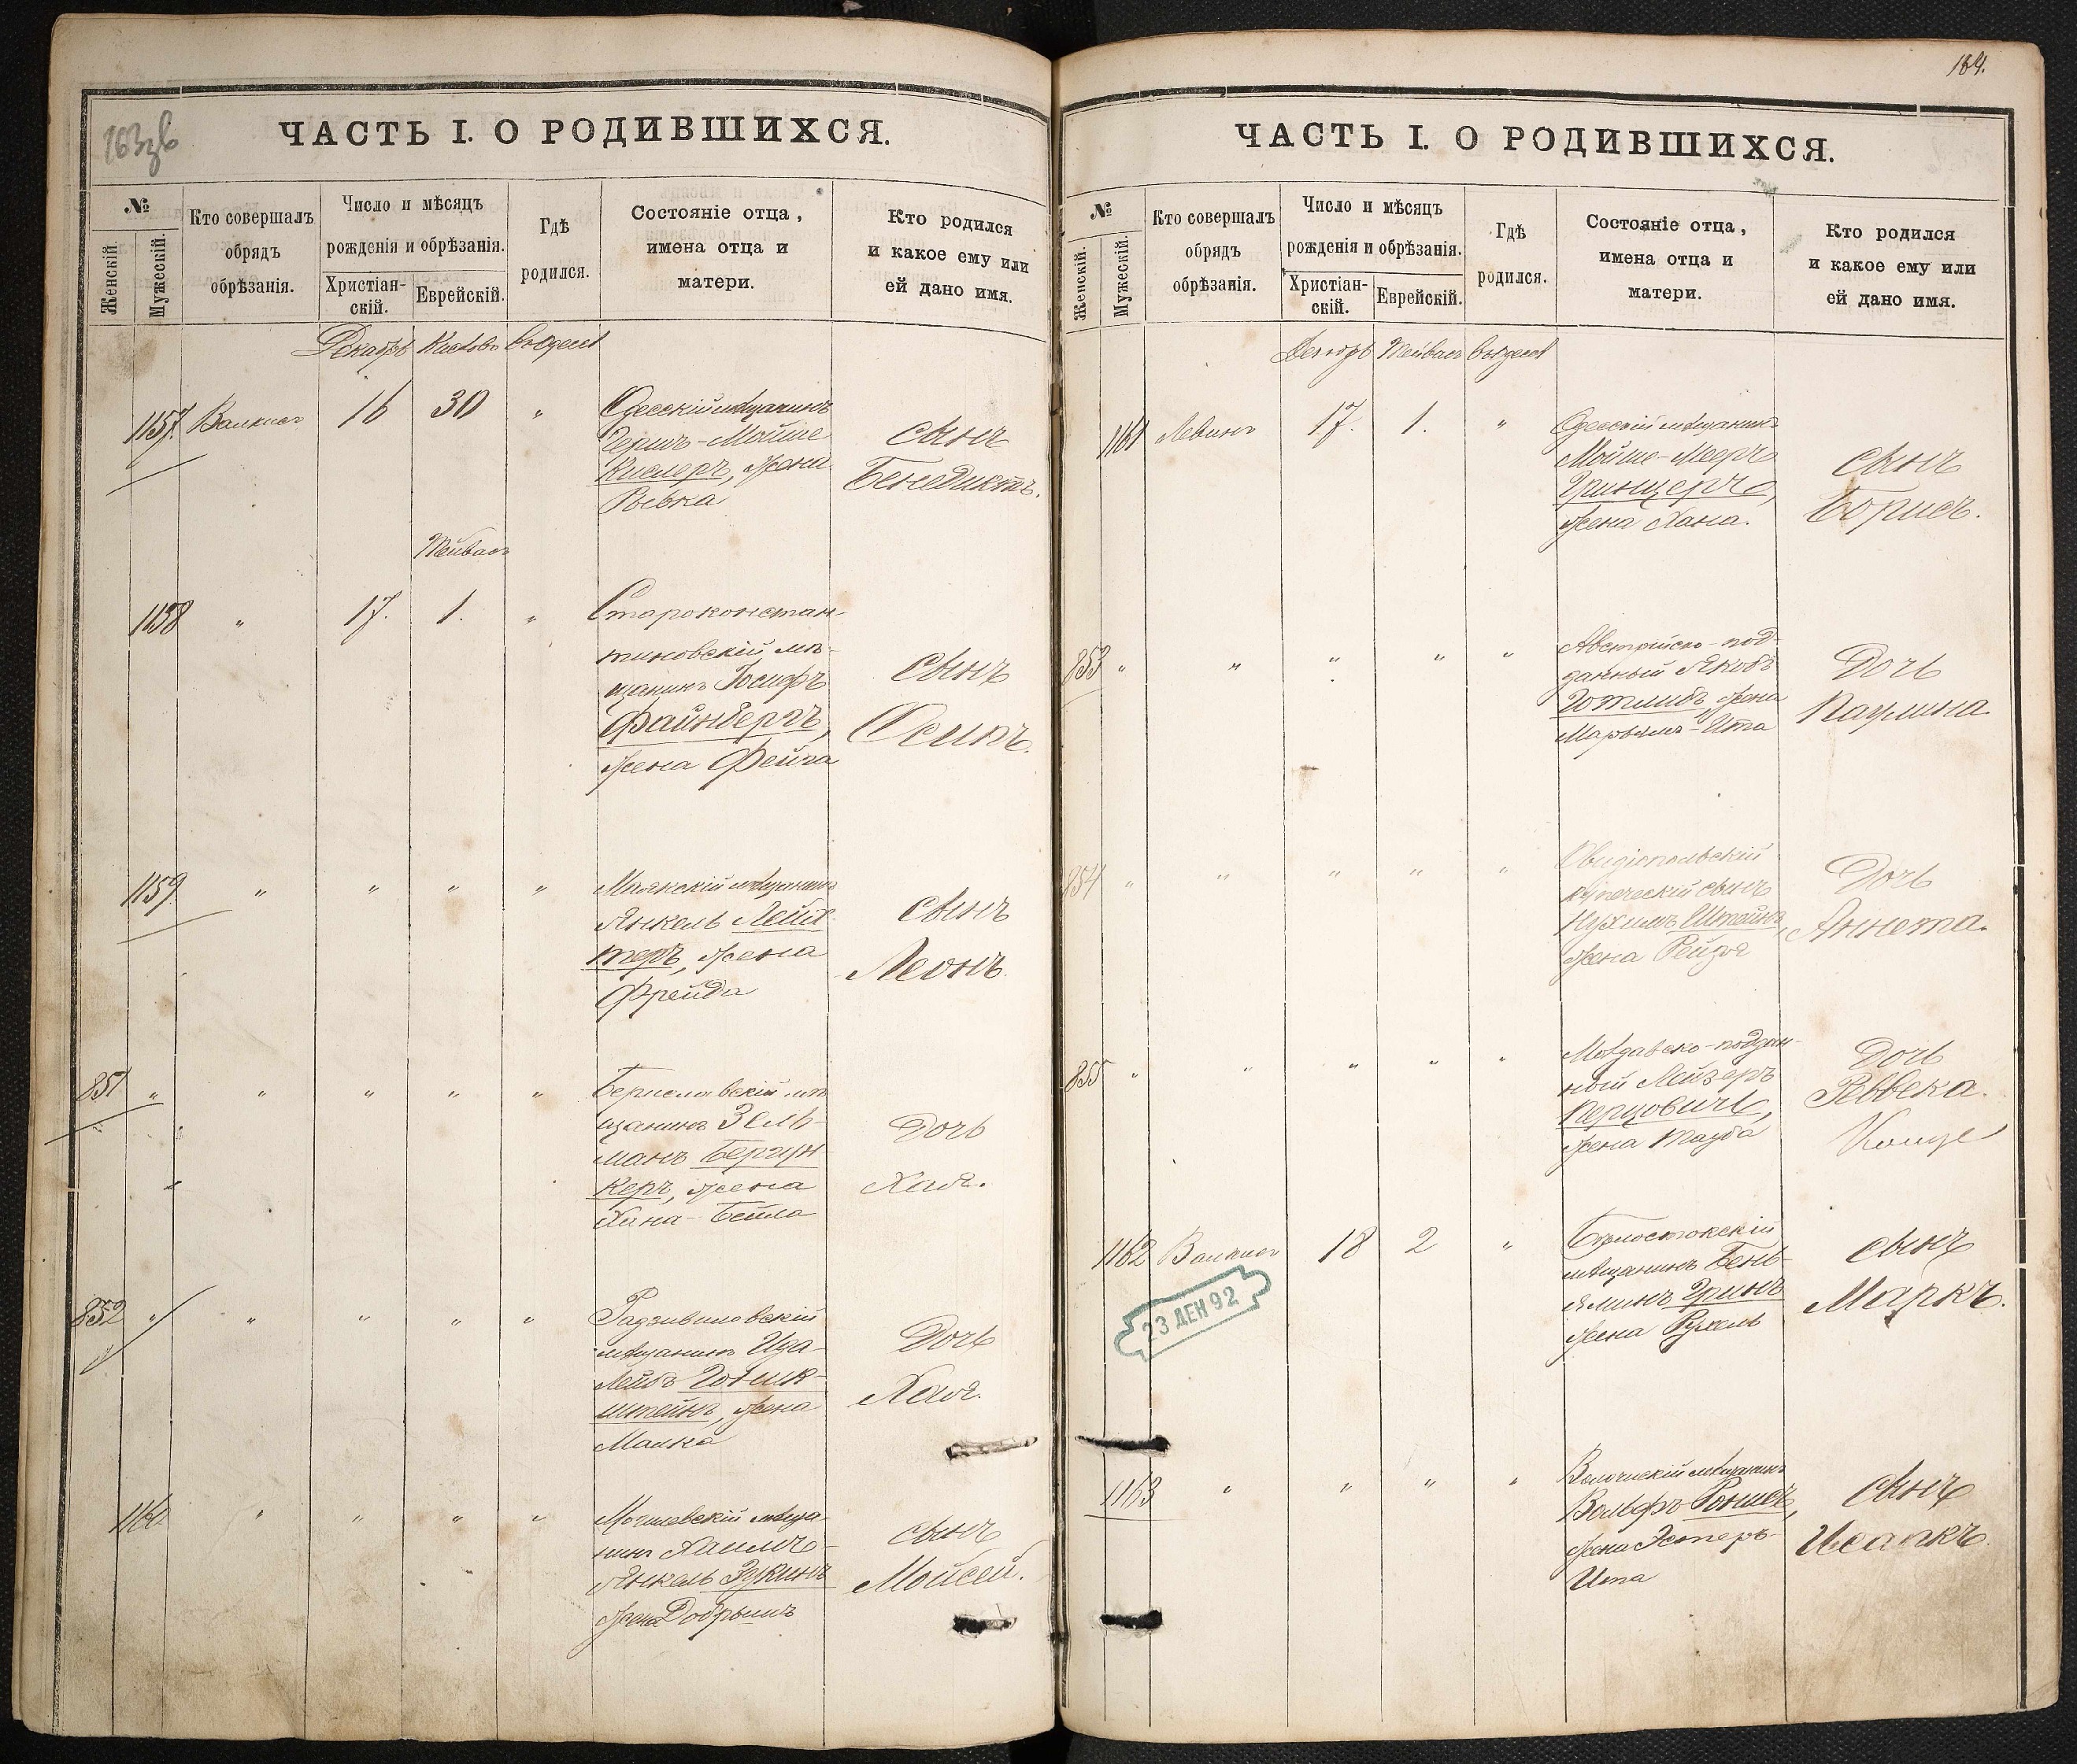 163зв
ЧАСТЬ I. О РОДИВШИХСЯ.
№
Женскій.
Мужескій.
Кто совершалъ
обрядъ
обрѣзанія.
Число и мѣсяцъ
рожденія и обрѣзанія.
Христіан-
скій.
Еврейскій.
Гдѣ
родился.
Состояніе отца,
имена отца и
матери.
Кто родился
и какое ему или
ей дано имя.
Декабрь Кислевъ
1157. 16 30 " Одесскій мѣщанинъ
Гершъ-Мойше
Кислеръ, жена
Ривка
сынъ
Бенедиктъ.
Тейвасъ
1158 " 17. 1. " Староконстан-
тиновскій мѣ-
щанинъ Іосифъ
Файнбергъ,
жена Фейга
сынъ
Осипъ.
1159. " " " " Маякскій мѣщанинъ
Янкель Лейх-
теръ, жена
Фрейда
сынъ
Леонъ
851 " " " " " Бериславскій мѣ-
щанинъ Зель-
манъ
керъ, жена
Хана-Бейла
Дочь
Хая.
852 " " " " " Радзивиловскій
мѣщанинъ
Лейбъ
штейнъ, жена
Малка
Дочь
Хая.
1160 " " " " Могилевскій мѣща-
нинъ Хаимъ-
Янкель Зукинъ
жена Добрышъ
сынъ
Мойсей.
164.
ЧАСТЬ I. О РОДИВШИХСЯ.
№
Женскій.
Мужескій.
Кто совершалъ
обрядъ
обрѣзанія.
Число и мѣсяцъ
рожденія и обрѣзанія.
Христіан-
скій.
Еврейскій.
Гдѣ
родился.
Состояніе отца,
имена отца и
матери.
Кто родился
и какое ему или
ей дано имя.
Декабрь Тейвасъ
1161 Левинъ 17. 1. " Одесскій мѣщанинъ
Мойше-Мееръ
Гринцеръ,
жена Хана.
сынъ
Борисъ.
853 " " " " " Австрійско-под-
данный Якобъ
Готлибъ, жена
Марьямъ-Ита
Дочь
Паулина.
854 " " " " " Овидіопольскій
купеческій сынъ
Нухимъ Штейнъ,
жена Рейзя
Дочь
Аннета.
855 " " " " " Молдавско-поддан-
ный Лейзеръ
Перцовичъ,
жена Тауба
Дочь
Реввека.
1162 18 2 " Бѣлостокскій
мѣщанинъ Бень-
яминъ Гринъ
жена Рухель
сынъ
Маркъ.
23 ДЕН 92
1163 " " " " мѣщанинъ
Вольфъ
жена Эстеръ-
Ита
сынъ
Исаакъ.